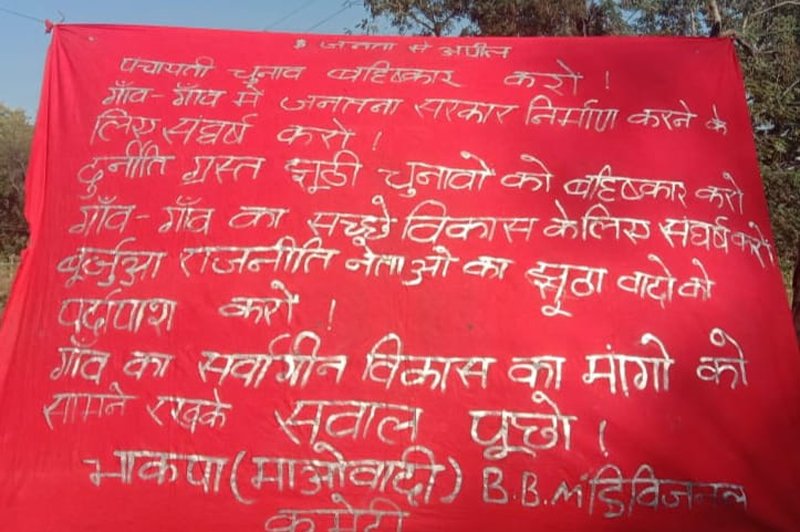 जनता से अपील
पंचायती चुनाव बहिष्कार करो !
गाँव-गाँव में जनताना सरकार निर्माण करने के
लिए संघर्ष करो !
दुर्नीति ग्रस्त झूठी चुनावों को बहिष्कार करो
गाँव-गाँव का सच्छे विकास के लिए संघर्ष करो
बूर्जुआ राजनीति नेताओ का झूठा वादो को
पर्दापाश करो !
गाँव का सर्वागीन विकास का मांगो को
सामने रखके सवाल पूछो !
भाकपा (माओवादी) B.B.M डिविजनल
कमेटी